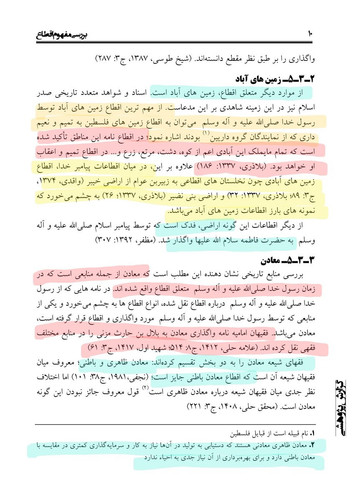 ۱۰
بررسی مفهوم اقطاع
واگذاری را بر طبق نظر مقطع دانسته‌اند. (شیخ طوسی، ۱۳۸۷، ج۳: ۲۸۷)
۲-۳-۵- زمین های آباد
از موارد دیگر متعلق اقطاع، زمین های آباد است. اسناد و شواهد متعدد تاریخی صدر
اسلام نیز در این زمینه شاهدی بر این مدعاست. از مهم ترین اقطاع زمین های آباد توسط
رسول خدا صلی‌الله علیه و آله وسلم می‌توان به اقطاع زمین های فلسطین به تمیم و نعیم
داری که از نمایندگان گروه داریین(۱) بودند اشاره نمود؛ در اقطاع نامه این مناطق تأکید شده
است که تمام مایملک این آبادی اعم از کوه، دشت، مرتع، زرع و... در اقطاع تمیم و اعقاب
او خواهد بود. (بلاذری، ۱۳۳۷: ۱۸۶) علاوه بر این، در میان اقطاعات پیامبر خدا، اقطاع
زمین های آبادی چون نخلستان های اقطاعی به زبیربن عوام از اراضی خیبر (واقدی، ۱۳۷۴،
ج۳: ۸۹؛ بلاذری، ۱۳۳۷: ۳۲) و اراضی بنی نضیر (بلاذری، ۱۳۳۷: ۲۶) به چشم می‌خورد که
نمونه های بارز اقطاعات زمین های آباد می‌باشد.
از دیگر اقطاعات این گونه اراضی، فدک است که توسط پیامبر اسلام صلی‌الله علیه و آله
وسلم به حضرت فاطمه سلام الله علیها واگذار شد. (مظفر، ۱۳۹۲: ۳۰۷)
۳-۳-۵- معادن
بررسی منابع تاریخی نشان دهنده این مطلب است که معادن از جمله منابعی است که در
زمان رسول خدا صلی‌الله علیه و آله وسلم متعلق اقطاع واقع شده اند. در نامه هایی که از رسول
خدا صلی‌الله علیه و آله وسلم درباره اقطاع نقل شده، انواع اقطاع ها به چشم می‌خورد و یکی از
منابعی که توسط رسول خدا صلی‌الله علیه و آله وسلم مورد واگذاری و اقطاع قرار گرفته است،
معادن می‌باشد. فقیهان امامیه نامه واگذاری معادن به بلال بن حارث مزنی را در منابع مختلف
فقهی نقل کرده اند. (علامه حلی، ۱۴۱۲، ج۸: ۵۱۴؛ شهید اول، ۱۴۱۷، ج۳: ۶۱)
فقهای شیعه معادن را به دو بخش تقسیم کرده‌اند: معادن ظاهری و باطنی؛ معروف میان
فقیهان شیعه آن است که اقطاع معادن باطنی جایز است؛ (نجفی، ۱۹۸۱، ج۳۸: ۱۰۱) اما اختلاف
نظر جدی میان فقیهان شیعه درباره معادن ظاهری است(۲) قول معروف جائز نبودن این گونه
معادن است. (محقق حلی، ۱۴۰۸، ج۳: ۲۲۱)
۱- نام قبیله است از قبایل فلسطین
۲- معادن ظاهری معادنی هستند که دستیابی به تولید در آن‌ها نیاز به کار و سرمایه‌گذاری کمتری در مقایسه با
معادن باطنی دارد و برای بهره‌برداری از آن نیاز جدی به احیاء ندارد.
گزارش پژوهشی